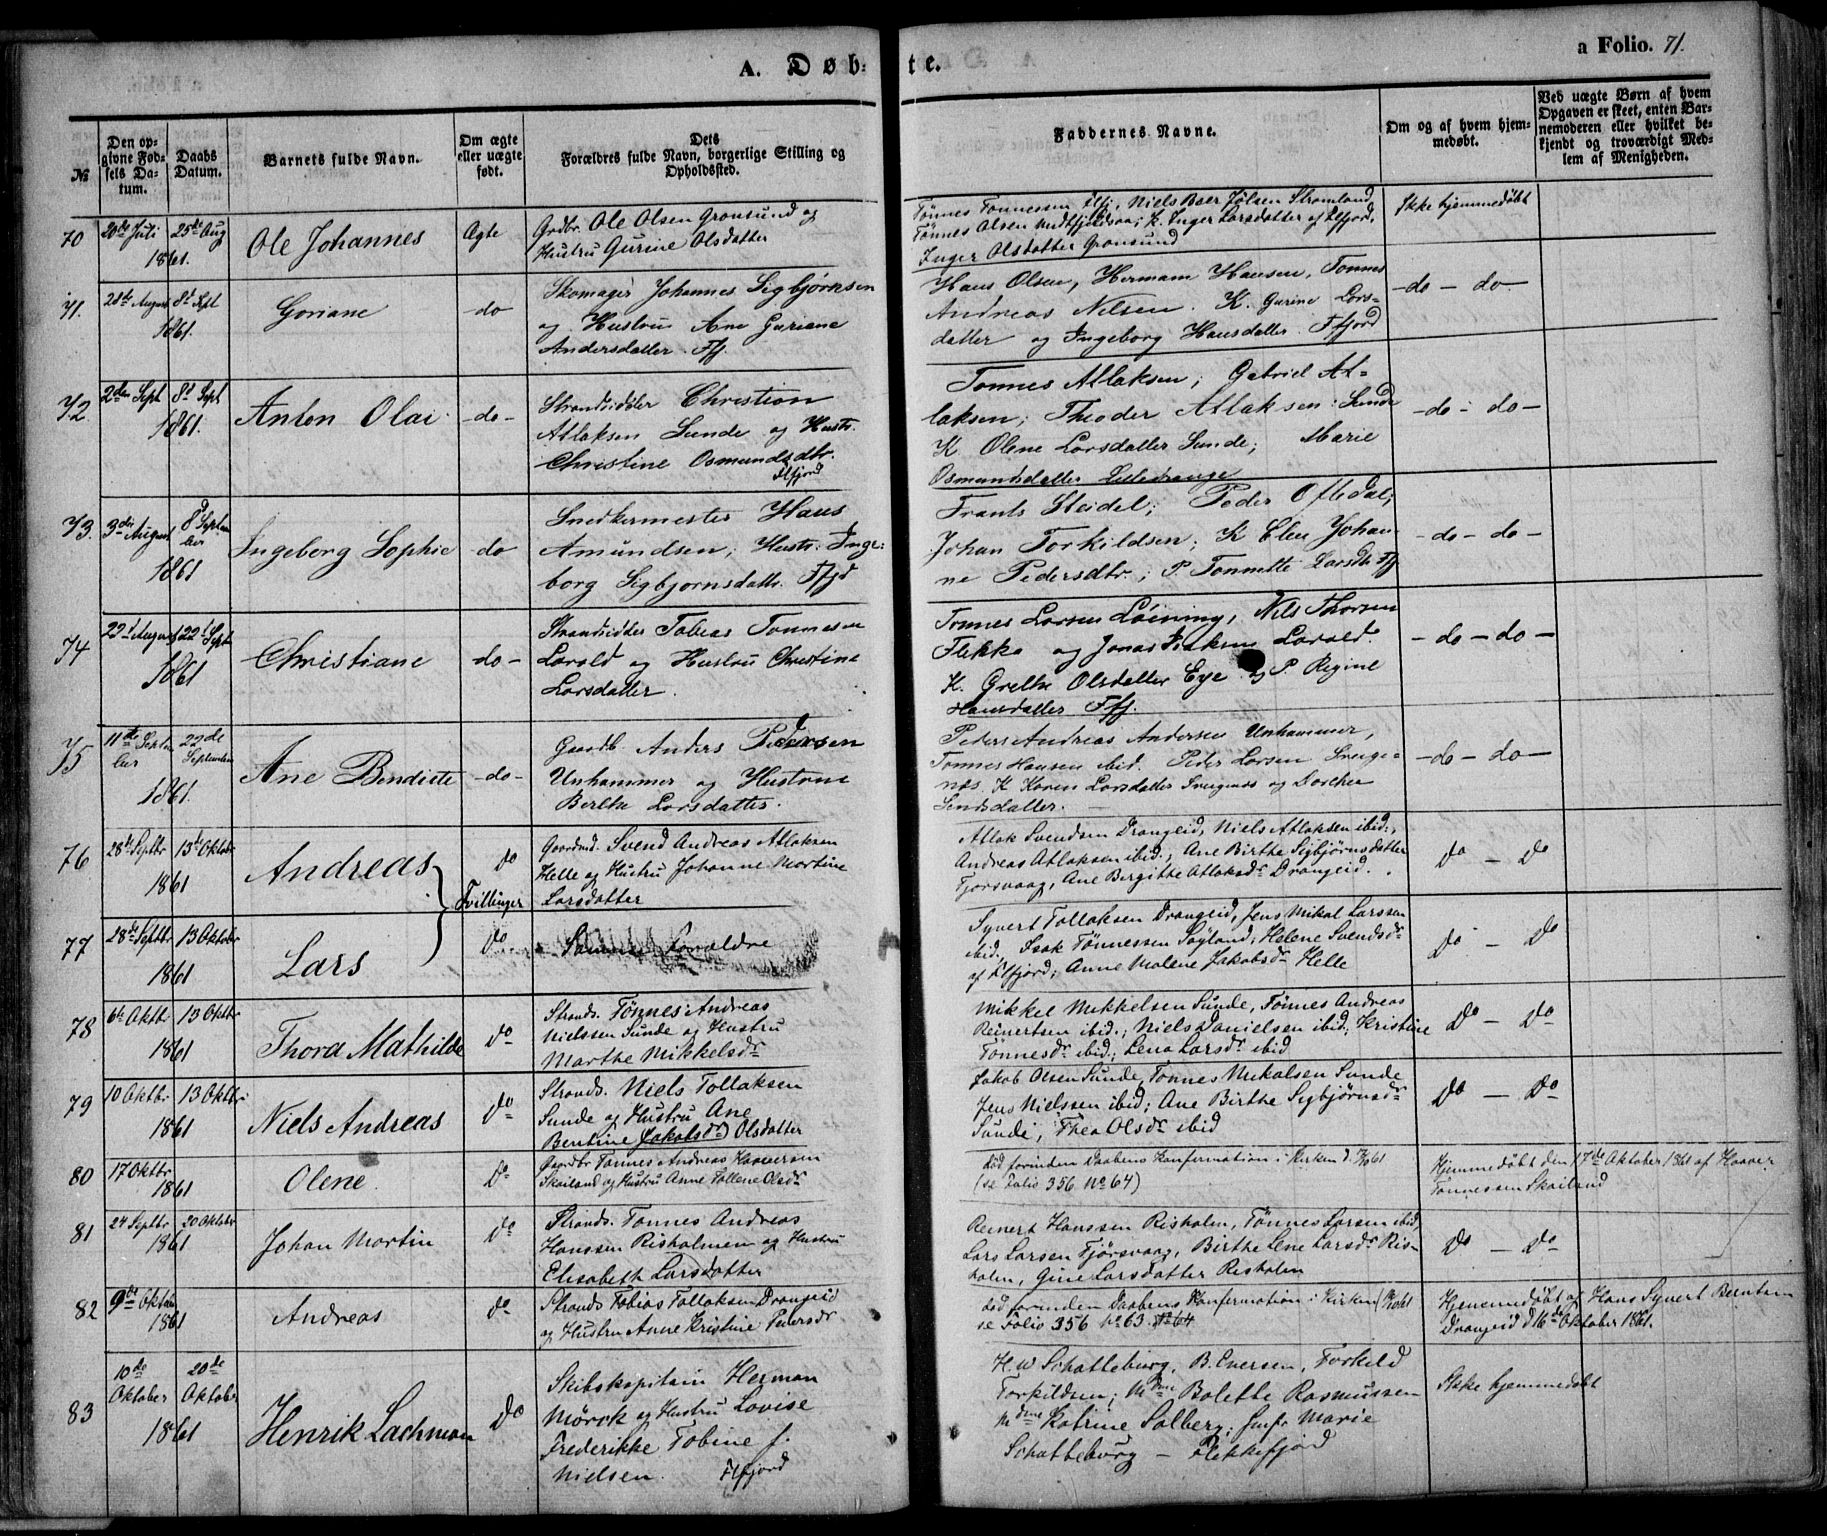 A. Døb-
te.
a Folio. 71.
№
Den op-
givne Fød-
sels Da-
tum.
Daabs
Datum.
Barnets fulde Navn.
Om ægte
eller uægte
født.
Dets
Forældres fulde Navn, borgerlige Stilling og
Opholdssted.
Faddernes Navne.
Om og af hvem hjem-
medøbt.
Ved uægte Børn af hvem
Opgaven er skeet, enten Bar-
nemoderen eller hvilket be-
kjendt og troværdigt Med-
lem af Menigheden.
70
20de Juli
25de Aug
1861.
Ole Johannes
Ægte
Grdbr. Ole Olsen Gronsund og
Hustru Gurine Olsdatter
Tønnes Tonnessen Flfj., Niels Boer Jølsen Stromland
Tønnes Olsen K. Inger Larsdatter af Flfjord,
Inger Olsdatter Gronsund
Ikke hjemmedøbt
71.
21de August
8d Sept
1861.
Goriane
do
Skomager Johannes Sigbjørnsen
og Hustru Ane Guriane
Andersdatter. Ffj.
Hans Olsen, Hermann Hansen, Tonnes
Andreas Nilsen. K. Gurine Lars-
datter og Ingeborg Hansdatter. Ffjord
-do- do-
72
2den Sept
8d Sept
1861.
Anton Olai
-do-
Strandsidder Christian
Atlaksen Sunde og Hustr.
Christine Osmundsdtr.
Flfjord
Tonnes Atlaksen; Gabriel At-
laksen; Theodor Atlaksen: Sunde
K Olene Larsdatter Sunde; Marie
Osmundsdatter Lilledrange
-do- do-
73.
3die August
8d Septem
ber
1861
Ingeborg Sophie
do
Snedkermester Hans
Amundsen; Hustr: Inge-
borg Sigbjornsdattr. Ffjd
Frants Steidel; Peder Oftedal;
Johan Torkildsen; K Elen Johan-
ne Pedersdtr.; P. Tonnette Larsdtr Ffj
-do- do-
74
22d August
22d Sept
1861
Christiane
-do-
Strandsidder Tobias Tonnesen
Lavold og Hustru Christine
Larsdatter.
Tonnes Larsen Løining, Nils Thorsen
Flekke og Jonas Lavold.
K. Grethe Olsdatter Eye og P. Regine
Hansdatter Ffj.
-do-do-
75
11te Septem
ber
22de
September
1861.
Ane Bendicte
-do-
Gaardb Anders Pedersen
Unhammer og Hustrue
Berthe Larsdatter.
Peder Andreas Andersen Unhammer,
Tonnes Hansen ibid. Peder Larsen Svege-
næs. K Karen Larsdatter Svegenæs og Dorthea
-do- do-
76
28de Septbr
13de Oktobr
1861
Andreas
do
Tvillinger
Gaardmd. Svend Andreas Atlaksen
Helle og Hustru Johanne Martine
Larsdatter
Atlak Svendsen Drangeid, Niels Atlaksen ibid.,
Andreas Atlaksen ibid.; Ane Birthe Sigbjørnsdatter
Fjorsvaag, Ane Birgitte Atlaksdr Drangeid.
Do - Do
77
28de Septbr
13 Oktobr
1861
Lars
Do
Samme Forældre
Syvert Tollaksen Drangeid, Jens Mikal Larssen
ibid, Isak Tønnessen Søyland; Helene Svendsdr
af Flfjord; Anne Malene Jakobsdr Helle
Do - Do
78
6te Oktbr
13 Oktbr
1861
Thora Mathilde
Do
Strands. Tønnes Andreas
Nielssen Sunde og Hustru
Marthe Mikkelsdr
Mikkel Mikkelsen Sunde, Tønnes Andreas
Reinertsen ibid.; Niels Danielsen ibid; Kristine
Tønnesdr ibid; Lena Larsdr ibid
Do - Do
79
10 Oktbr
13 Oktbr
1861
Niels Andreas
Do
Strands. Niels Tollaksen
Sunde og Hustru Ane
Bentine (Jakobsdr) Olsdatter
Jakob Olsen Sunde, Tonnes Mikalsen Sunde
Jens Nielssen ibid; Ane Birthe Sigbjørnsdr
Sunde; Thea Olsdr ibid
Do - Do
80
17 Oktbr
1861
Olene
Do
Gaardbr Tonnes Andreas Haaversen
Skailand og Hustru Anne Tollene Olsdr
død forinden Daabens Konfirmation i Kirken
(se Folio 356 No 64)
Hjemmedøbt den 17de Oktober 1861 af Haaver
Tonnessen Skailand
81
24 Septbr
20 Oktobr
1861
Johan Martin
Do
Strands. Tonnes Andreas
Hanssen Risholmen og Hustru
Elisabeth Larsdatter
Reinert Hanssen Risholm, Tønnes Larsen ibid
Lars Larsen Fjørsvaag, Birthe Lene Larsdr Ris-
holm, Gine Larsdatter Risholm
Do - Do
82
9de Oktober
1861
Andreas
Do
Strands Tobias Tollaksen Drangeid
og Hustru Anne Kristine Pedersdr
død forinden Daabens Konfirmation i Kirken
se Folio 356 No 63
Hjemmedøbt af Hans Syvert Berntsen
Drangeid d 16de Oktober 1861.
83
10de
Oktober
20de
Oktober
1861
Henrik Lachman
Do
Skibskapitain Herman
Mörck og Hustru Lovise
Frederikke Tobine f.
Nielsen. Flfjord
H. W Schatteburg, B. Eversen, Torkild
Torkildsen; Mdme Bolette Rasmussen
Mdme Katrine Salberg; Jmfr Marie
Schatteburg - Flekkefjord
Ikke hjemmedøbt